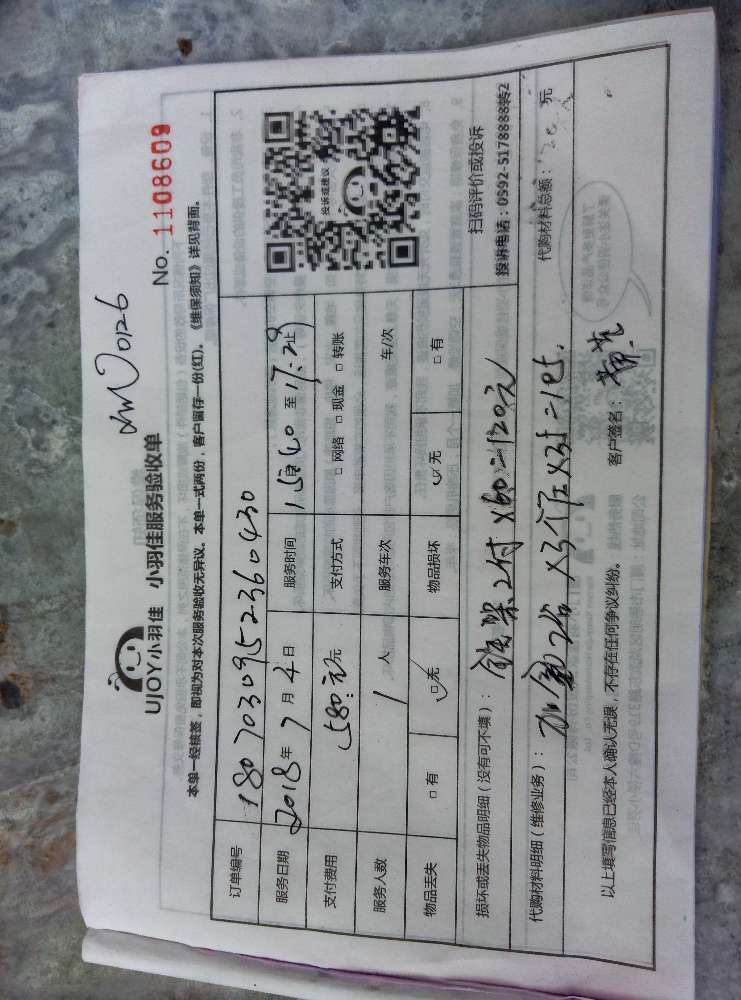 UJOY小羽佳 小羽佳服务验收单
本单一经核签，即视为对本次服务验收无异议。本单一式两份，客户留存一份(红)。《维保须知》详见背面。
No. 1108609
订单编号 1807030952360430
服务日期 2018年7月4日 服务时间 至17:29止
支付费用 580元 支付方式 □网络 □现金 □转账
服务人数 1人 服务车次 车/次
物品丢失 □有 □无 物品损坏 □无 □有
投诉或建议
扫码评价或投诉
投诉电话：0592-5178888转2
损坏或丢失物品明细（没有可不填）： 2付×60=120元
代购材料明细（维修业务）： 代购材料总额： 元
以上填写信息已经本人确认无误，不存在任何争议纠纷。 客户签名：